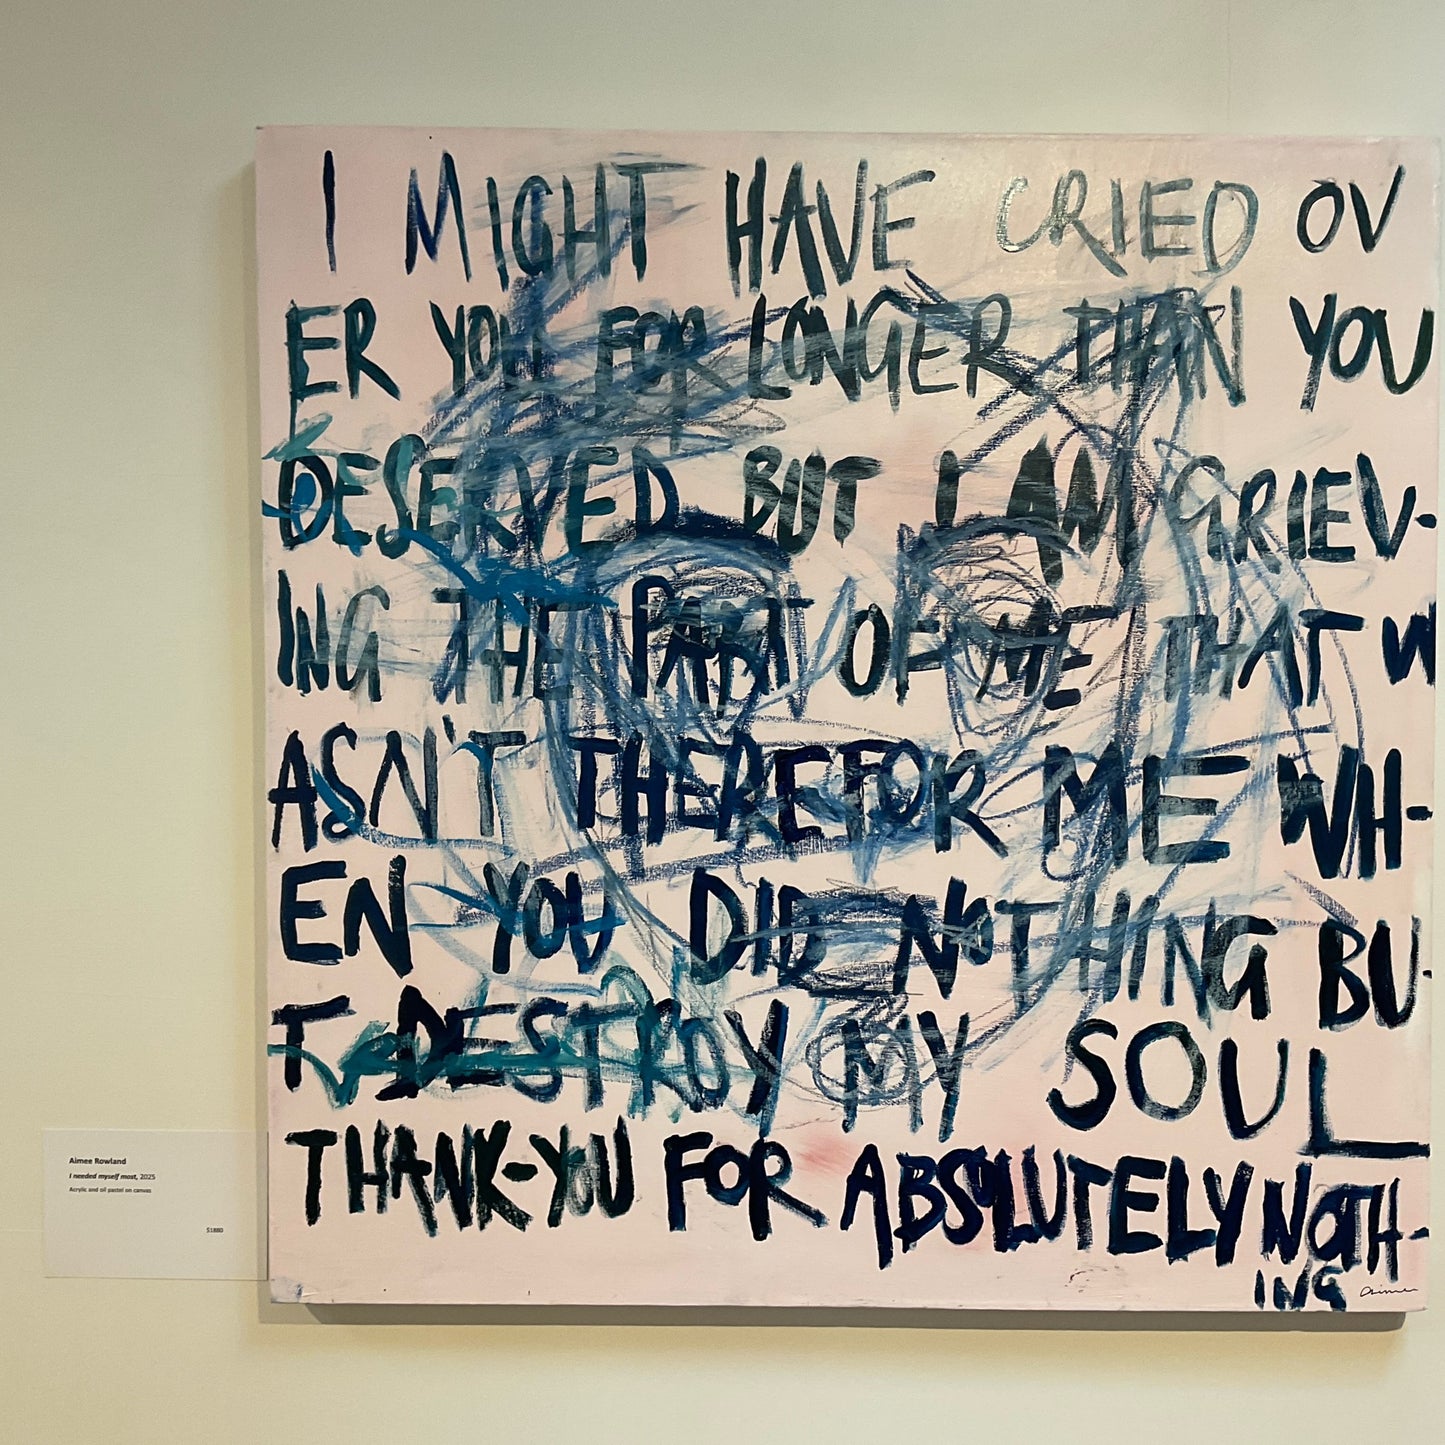 I MIGHT HAVE CRIED OV
ER YOU FOR LONGER THAN YOU
DESERVED BUT I AM GRIEV-
ING THE PART OF ME THAT W
ASN'T THERE FOR ME WH-
EN YOU DID NOTHING BU-
T DESTROY MY SOUL
THANK-YOU FOR ABSOLUTELY NOTH-
ING
Aimee
Aimee Rowland
I needed myself most, 2025
Acrylic and oil pastel on canvas
$1880